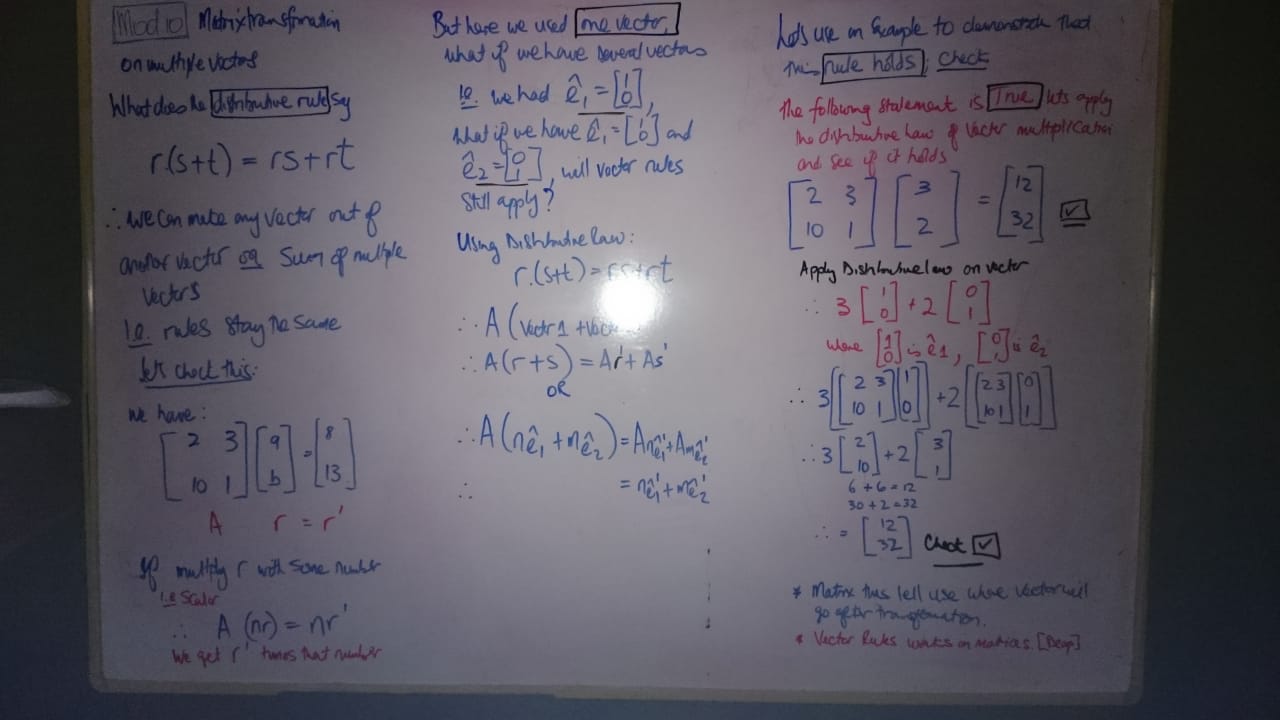 Mod 10 Matrix transformation
on multiple vectors
What does the distributive rule say
r.(s+t) = rs+rt
∴ We can make any vector out of
another vector OR Sum of multiple
vectors
I.e. rules stay the same
let's check this:
We have:
[2 3
10 1] [a
b] = [8
13]
A r = r'
If multiply r with some number
i.e Scalar
∴ A (nr) = nr'
We get r' times that number
But here we used one vector,
what if we have several vectors
Ie. we had ê₁ = [1
0],
what if we have ê₁ = [1
0] and
ê₂ = [0
1], will vector rules
Still apply?
Using Distributive law:
r.(s+t) = rs+rt
∴ A (Vector 1 +
∴ A(r+s) = Ar'+As'
OR
∴ A(nê₁ + mê₂) = Anê₁' + Amê₂'
= nê₁' + mê₂'
∴
Lets use an Example to demonstrate that
this rule holds; Check
The following statement is True lets apply
the distributive Law of Vector multiplication
and see if it holds
[2 3
10 1] [3
2] = [12
32] ☑
Apply Distributive law on vector
∴ 3 [1
0] + 2 [0
1]
where [1
0] is ê1, [0
1] is ê₂
∴ 3[[2 3
10 1][1
0]] + 2[[2 3
10 1][0
1]]
∴ 3 [2
10] + 2 [3
1]
6 + 6 = 12
30 + 2 = 32
∴ = [12
32] Check ☑
* Matrix thus tell use where vector will
go after transformation.
* Vector Rules works on matrices. [Deap]